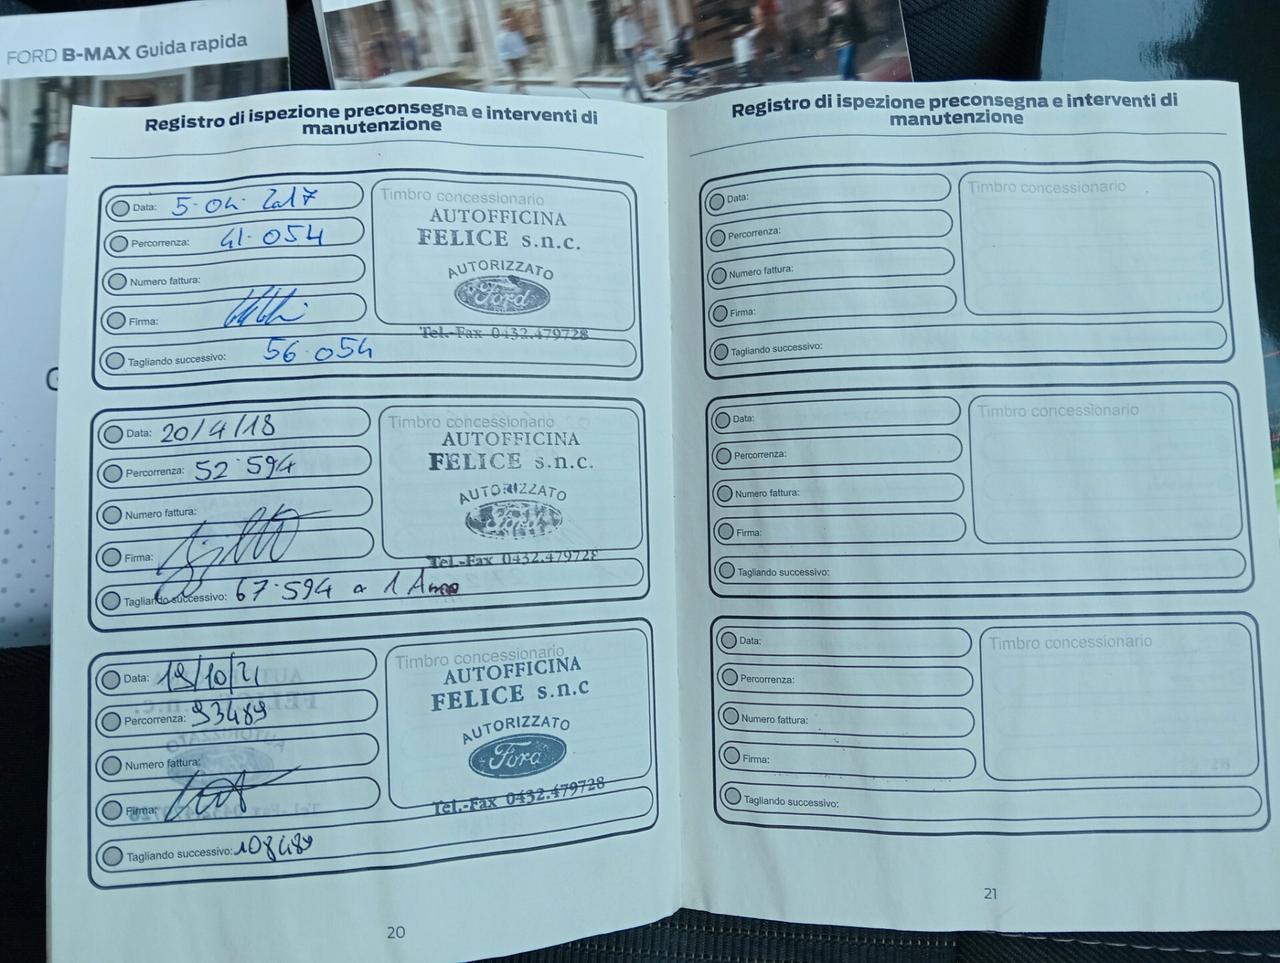 FORD B-MAX Guida rapida
Registro di ispezione preconsegna e interventi di
manutenzione
Data: 5-04-2017
Percorrenza: 41.054
Numero fattura:
Firma:
Tagliando successivo: 56.054
Timbro concessionario
AUTOFFICINA
FELICE s.n.c.
AUTORIZZATO
Ford
Tel.-Fax 0432.479728
Data: 20/4/18
Percorrenza: 52.594
Numero fattura:
Firma:
Tagliando successivo: 67.594 o 1 Anno
Timbro concessionario
AUTOFFICINA
FELICE s.n.c.
AUTORIZZATO
Ford
Tel.-Fax 0432.479728
Data: 19/10/21
Percorrenza: 93489
Numero fattura:
Firma:
Tagliando successivo: 108489
Timbro concessionario
AUTOFFICINA
FELICE s.n.c
AUTORIZZATO
Ford
Tel.-Fax 0432.479728
20
Registro di ispezione preconsegna e interventi di
manutenzione
Data:
Percorrenza:
Numero fattura:
Firma:
Tagliando successivo:
Timbro concessionario
Data:
Percorrenza:
Numero fattura:
Firma:
Tagliando successivo:
Timbro concessionario
Data:
Percorrenza:
Numero fattura:
Firma:
Tagliando successivo:
Timbro concessionario
21